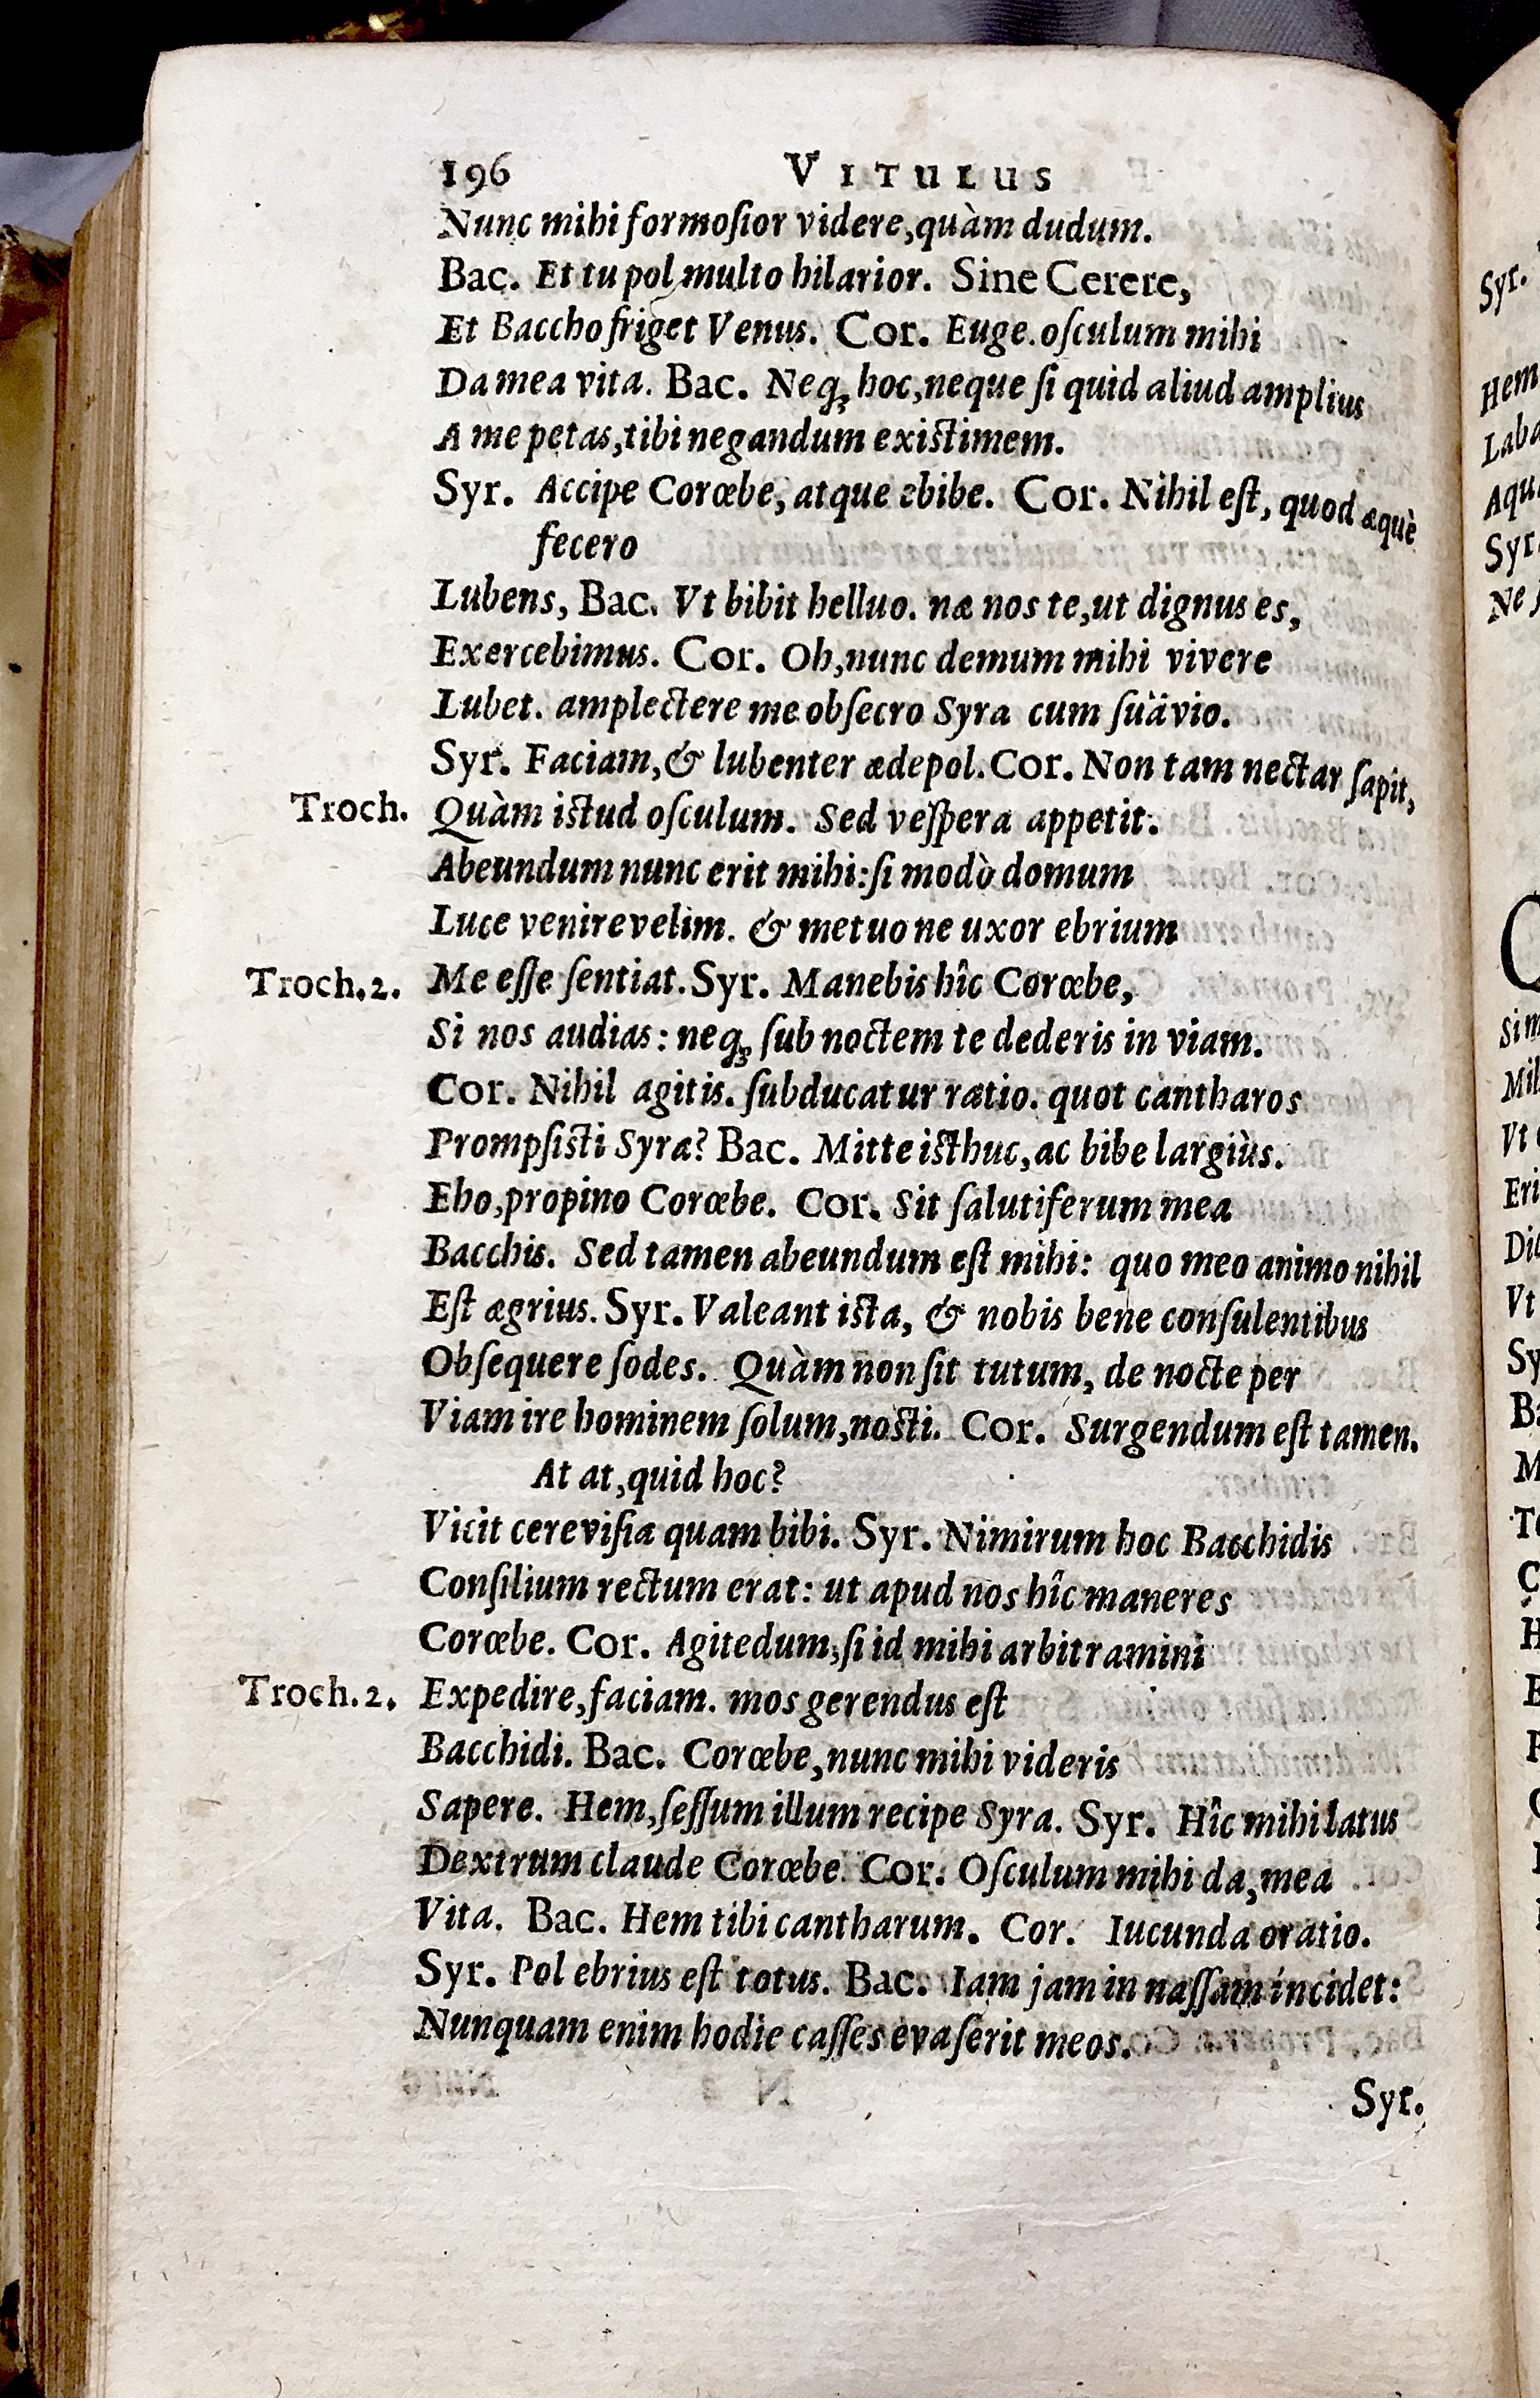 196 VITULUS
Nunc mihi formoſior videre, quàm dudum.
Bac. Et tu pol multo hilarior. Sine Cerere,
Et Baccho friget Venus. Cor. Euge. oſculum mihi
Da mea vita. Bac. Neq; hoc, neque ſi quid aliud amplius
A me petas, tibi negandum existimem.
Syr. Accipe Corœbe, atque ebibe. Cor. Nihil eſt, quod æquè
fecero
Lubens, Bac. Vt bibit helluo. næ nos te, ut dignus es,
Exercebimus. Cor. Oh, nunc demum mihi vivere
Lubet. amplectere me obſecro Syra cum ſuävio.
Syr. Faciam, & lubenter ædepol. Cor. Non tam nectar ſapit,
Troch. Quàm istud oſculum. Sed veſpera appetit.
Abeundum nunc erit mihi: ſi modò domum
Luce venire velim. & metuo ne uxor ebrium
Troch. 2. Me eſſe ſentiat. Syr. Manebis hîc Corœbe,
Si nos audias: neq; ſub noctem te dederis in viam.
Cor. Nihil agitis. ſubducatur ratio. quot cantharos
Prompſisti Syra? Bac. Mitte isthuc, ac bibe largiùs.
Eho, propino Corœbe. Cor. Sit ſalutiferum mea
Bacchis. Sed tamen abeundum eſt mihi: quo meo animo nihil
Eſt ægrius. Syr. Valeant ista, & nobis bene conſulentibus
Obſequere ſodes. Quàm non ſit tutum, de nocte per
Viam ire hominem ſolum, nosti. Cor. Surgendum eſt tamen.
At at, quid hoc?
Vicit cereviſia quam bibi. Syr. Nimirum hoc Bacchidis
Conſilium rectum erat: ut apud nos hîc maneres
Corœbe. Cor. Agitedum, ſi id mihi arbitramini
Troch. 2. Expedire, faciam. mos gerendus eſt
Bacchidi. Bac. Corœbe, nunc mihi videris
Sapere. Hem, ſeſſum illum recipe Syra. Syr. Hîc mihi latus
Dextrum claude Corœbe. Cor. Oſculum mihi da, mea
Vita. Bac. Hem tibi cantharum. Cor. Iucunda oratio.
Syr. Pol ebrius eſt totus. Bac. Iam jam in naſſam incidet:
Nunquam enim hodie caſſes evaſerit meos.
Syr.
Syr.
Hem
Laba
Aqu
Syr
Ne
Sim
Mil
Vt
Eri
Dic
Vt
Sy
Ba
M